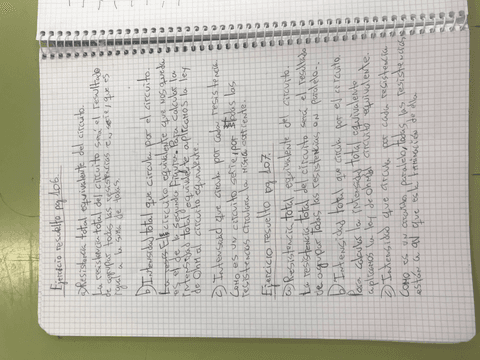 Ejercicio resuelto pg 106.
a) Resistencia total equivalente del circuito.
La resistencia total del circuito será el resultado
de agrupar todas las resistencias en serie, que es
igual a la suma de todas.
b) Intensidad total que circula por el circuito
El circuito equivalente que nos queda
es el de la segunda figura. Para calcular la
intensidad total equivalente aplicamos la ley
de Ohm al circuito equivalente.
c) Intensidad que circula por cada resistencia
Como es un circuito serie, por todas las
resistencias circulará la misma
Ejercicio resuelto pg 107.
a) Resistencia total equivalente del circuito
La resistencia total del circuito será el resultado
de agrupar todas las resistencias en paralelo.
b) Intensidad total que circula por el circuito
Para calcular la intensidad total equivalente
aplicamos la ley de Ohm al circuito equivalente
c) Intensidad que circula por cada resistencia
Como es un circuito paralelo, todas las resistencias
están a que es la